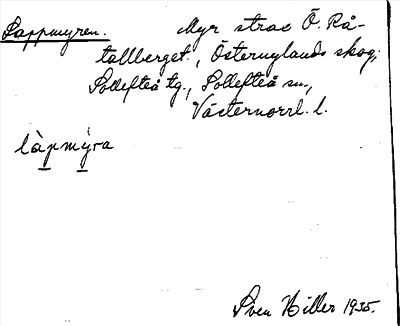 Lappmyren. Myr strax Ö. Rå-
tallberget, Östernylands skog,
Sollefteå tg., Sollefteå sn.,
Västernorrl. l.
làpmýra
Sven Hiller 1935.